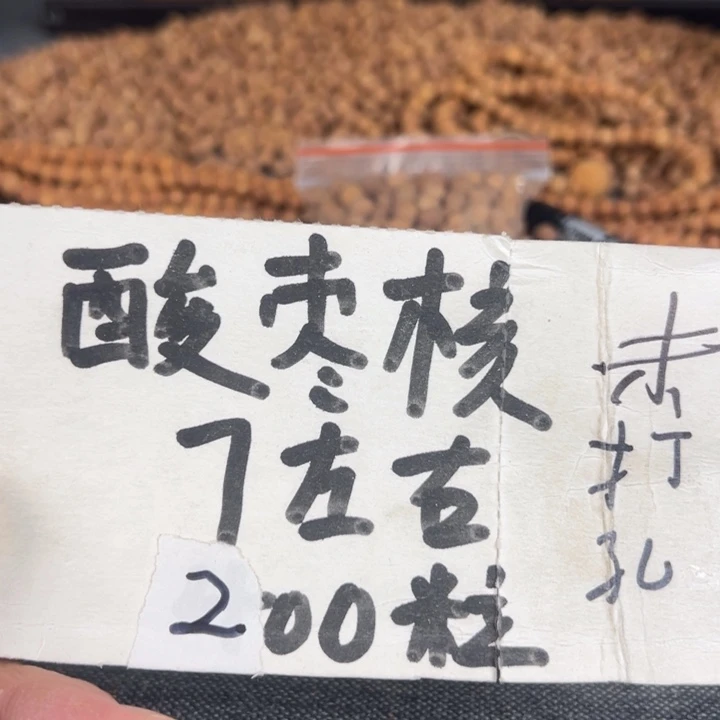 酸枣核
7左右
200粒
未打孔